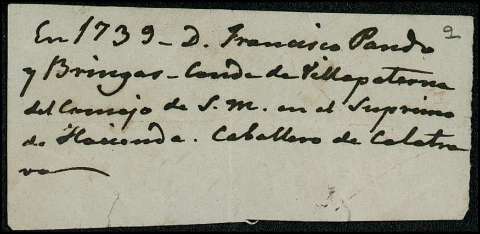 2
En 1739 - D. Francisco Pando
y Bringas - Conde de Villapaterna
del Consejo de S. M. en el Supremo
de Hacienda. Caballero de Calatra
va